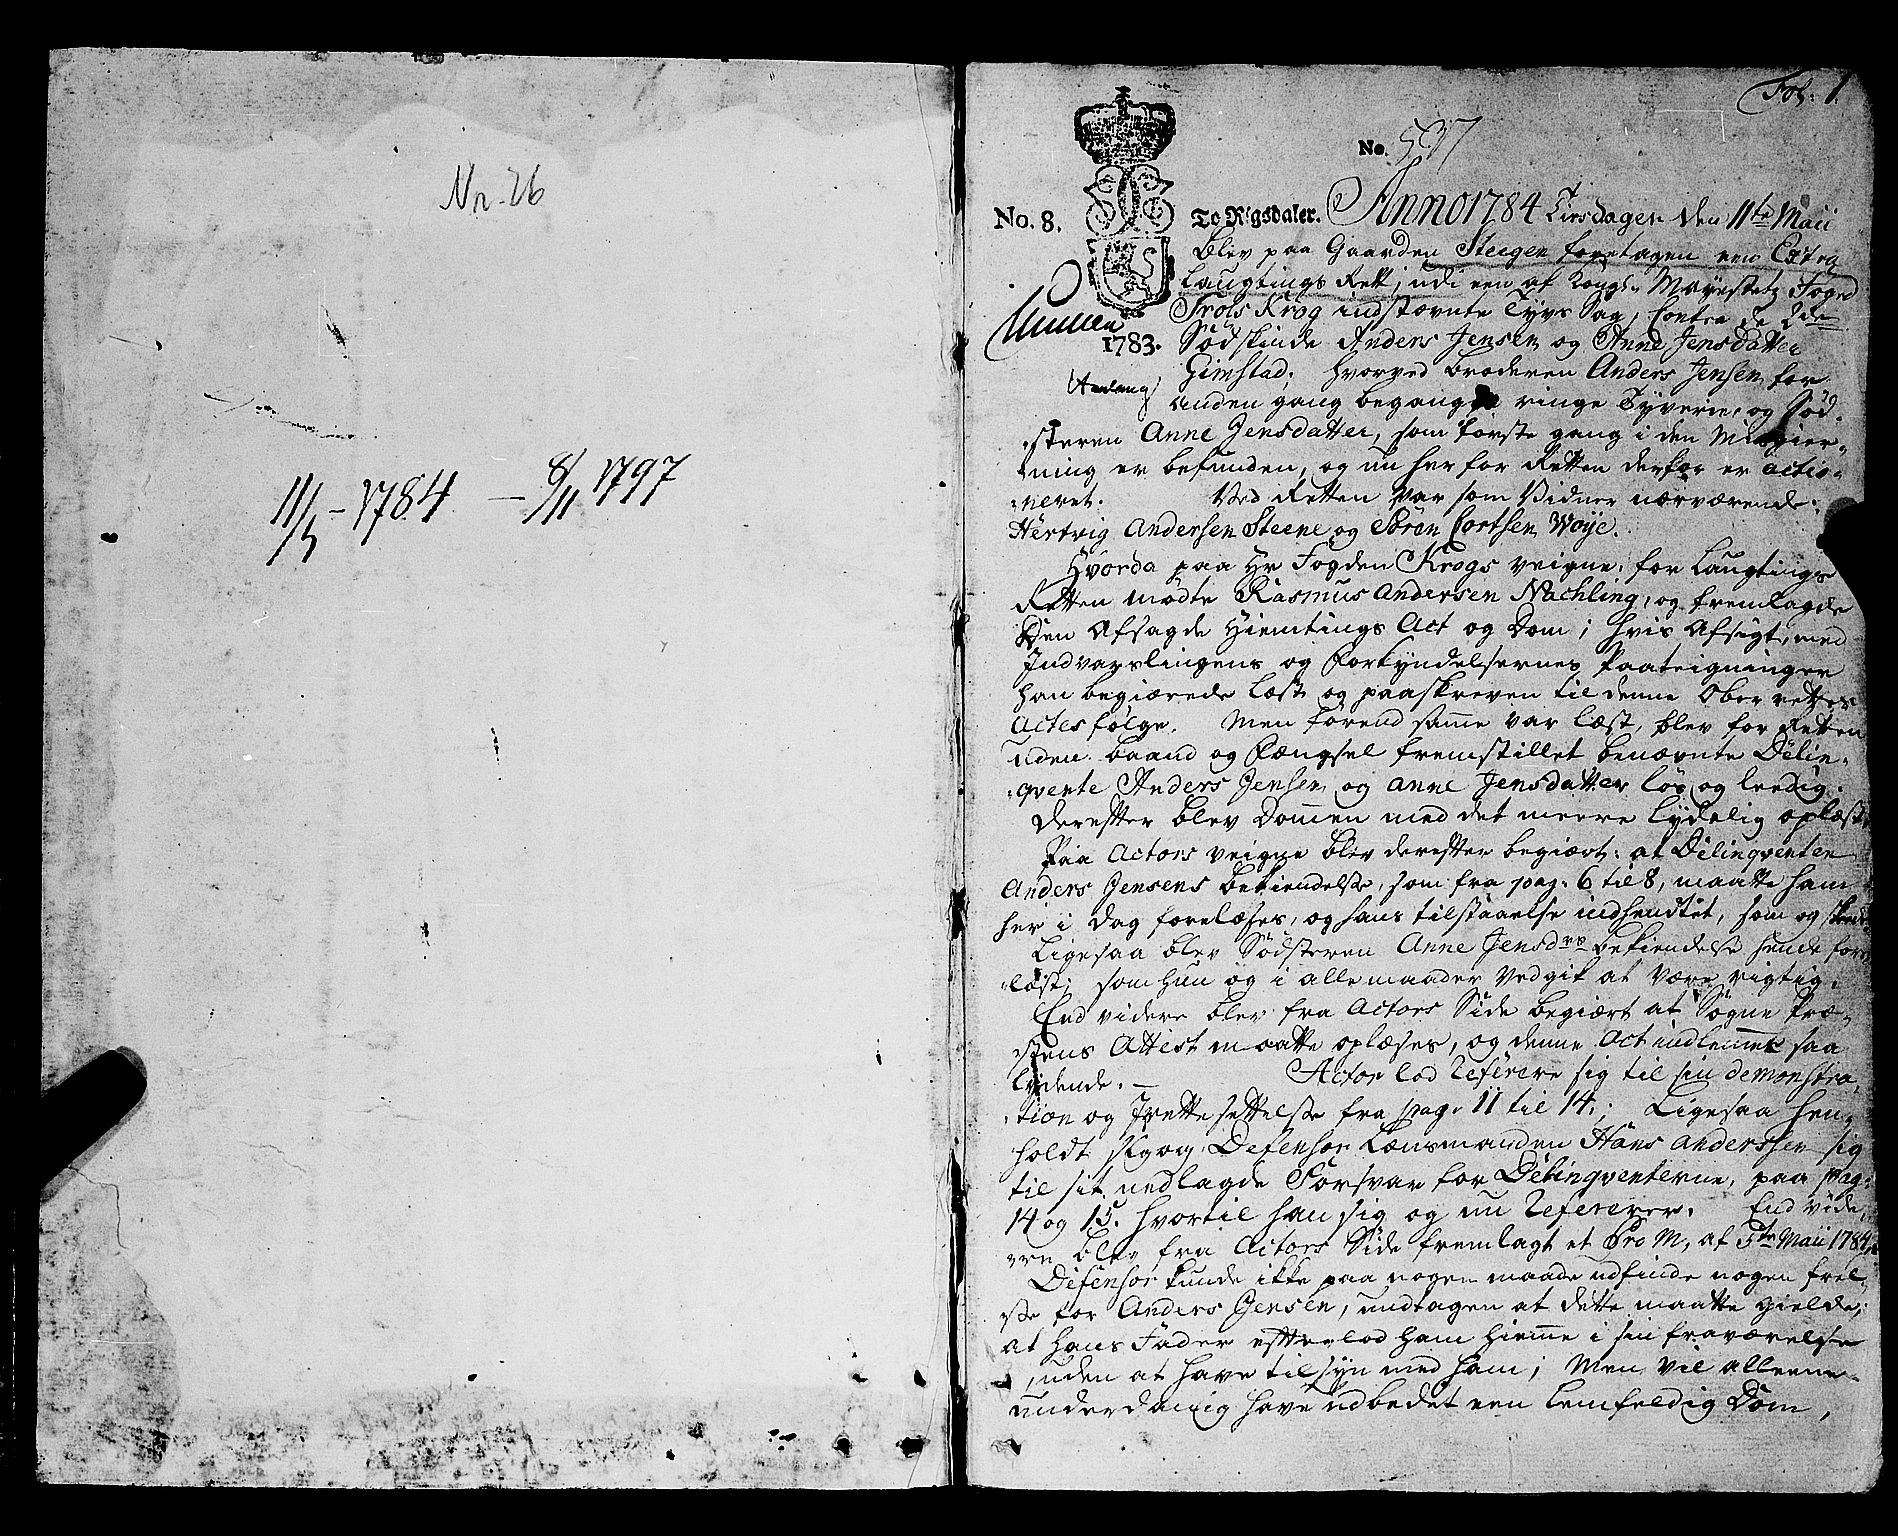 Nr. 26
11/5 - 1784 - 8/11 1797
Fol: 1.
No. 537
No. 8. To Rigsdaler. Anno 1784 Tirsdagen den 11te Maii
1783.
blev paa Gaarden Steegen foretagen een Extra
Laugtings Rett, udi een af Kongl. Mayestetz Foged
Trols Krog indstævnte Tyvs Sag, Contra de 2de
Södskinde Anders Jensen og Anne Jensdatter
Gimstad; hvorved broderen Anders Jensen for
anden gang begangne ringe Tyverie, og Söd-
steren Anne Jensdatter, som förste gang i den
ning er befunden, og nu her for Retten derfor er actio-
neret. Ved Retten var som Vidner nærværende:
Hertvig Andersen Steene og Sören Cortsen Woye.
Hvorda paa Hr Fogden Krogs veigne, for Laugtings
Retten mödte Rasmus Andersen Nachling, og fremlagde
Den Afsagde Hiemtings Act og Dom; hvis Afsigt, med
Indvarslingens og Forkyndelsernes Paateigninger
han begiærede læst og paaskreven til denne Ober rettes
Actes fölge. Men förend samme var læst, blev for Retten
uden baand og Fængsel fremstillet benævnte Delin-
qvente Anders Jensen og Anne Jensdatter lös og leedig.
Derefter blev Dommen med det meere lydelig oplæst.
Paa Actors veigne blev derefter begiært: at Delinqventen
Anders Jensens bekiendelse, som fra pag. 6 til 8, maatte ham
her i Dag forelæses, og hans tilstaaelse indhendtet, som og skede
Ligesaa blev Södsteren Anne Jensdrs bekiendelse hende fore-
læst; som hun og i alle maader vedgik at være rigtig.
End videre blev fra Actors Side begiært at Sogne Præ-
stens Attest maatte oplæses, og denne Act indlemmet saa
lydende. - Actor lod referere sig til sin demonstra-
tion og Irettesettelse fra pag. 11 til 14.; Ligesaa hen-
holdt sig og Defensor Lænsmanden Hans Anderssen sig
til sit nedlagde Forsvar for Delinqventerne, paa pag:
14 og 15. hvortil han sig og nu refererer. End vide-
ere blev fra Actors Side fremlagt et Pro M, af 5te Maii 1784,
Defensor kunde ikke paa nogen maade udfinde nogen frel-
se for Anders Jensen, undtagen at dette maatte gielde;
at hans Fader efterlod ham hiemme i sin fraværelse
uden at have tilsyn med ham; Men vil alleene
underdanig have udbedet een lemfeldig Dom,